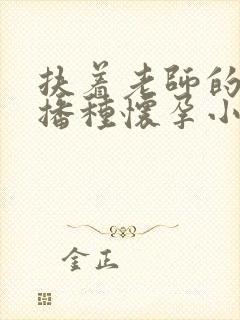 扶着老師的
播種懷孕小
金正